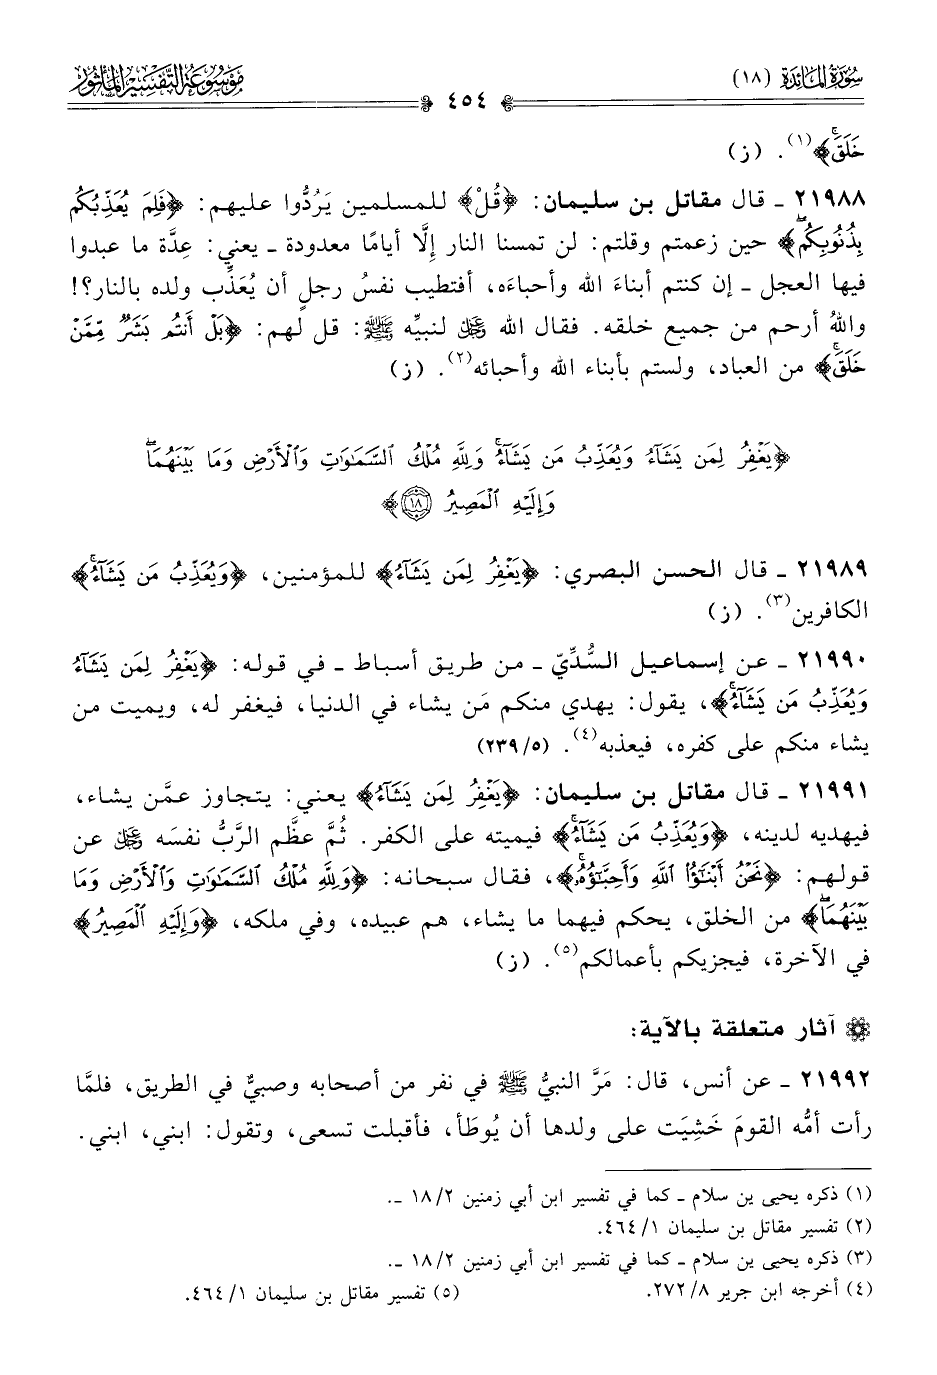 سُورَةُ المَائِدَة (١٨)
مَوْسُوعَةُ التَّفْسِيرِ المَأْثُور
٤٥٤
خَلَقَۚ﴾(١). (ز)
٢١٩٨٨ ـ قال مقاتل بن سليمان: ﴿قُلْ﴾ للمسلمين يَرُدُّوا عليهم: ﴿فَلِمَ يُعَذِّبُكُم
بِذُنُوبِكُمۖ﴾ حين زعمتم وقلتم: لن تمسنا النار إلَّا أيامًا معدودة ـ يعني: عِدَّة ما عبدوا
فيها العجل ـ إن كنتم أبناءَ الله وأحباءَه، أفتطيب نفسُ رجلٍ أن يُعَذِّب ولده بالنار؟!
واللهُ أرحم من جميع خلقه. فقال الله ﷿ لنبيِّه ﷺ: قل لهم: ﴿بَلْ أَنتُم بَشَرٌ مِّمَّنْ
خَلَقَۚ﴾ من العباد، ولستم بأبناء الله وأحبائه(٢). (ز)
﴿يَغْفِرُ لِمَن يَشَآءُ وَيُعَذِّبُ مَن يَشَآءُۚ وَلِلَّهِ مُلْكُ ٱلسَّمَٰوَٰتِ وَٱلْأَرْضِ وَمَا بَيْنَهُمَاۖ
وَإِلَيْهِ ٱلْمَصِيرُ ١٨﴾
٢١٩٨٩ ـ قال الحسن البصري: ﴿يَغْفِرُ لِمَن يَشَآءُ﴾ للمؤمنين، ﴿وَيُعَذِّبُ مَن يَشَآءُۚ﴾
الكافرين(٣). (ز)
٢١٩٩٠ ـ عن إسماعيل السُّدِّيّ ـ من طريق أسباط ـ في قوله: ﴿يَغْفِرُ لِمَن يَشَآءُ
وَيُعَذِّبُ مَن يَشَآءُۚ﴾، يقول: يهدي منكم مَن يشاء في الدنيا، فيغفر له، ويميت من
يشاء منكم على كفره، فيعذبه(٤). (٢٣٩/٥)
٢١٩٩١ ـ قال مقاتل بن سليمان: ﴿يَغْفِرُ لِمَن يَشَآءُ﴾ يعني: يتجاوز عمَّن يشاء،
فيهديه لدينه، ﴿وَيُعَذِّبُ مَن يَشَآءُۚ﴾ فيميته على الكفر. ثُمَّ عظَّم الرَّبُّ نفسَه ﷿ عن
قولهم: ﴿نَحْنُ أَبْنَٰٓؤُا۟ ٱللَّهِ وَأَحِبَّٰٓؤُهُۥۚ﴾، فقال سبحانه: ﴿وَلِلَّهِ مُلْكُ ٱلسَّمَٰوَٰتِ وَٱلْأَرْضِ وَمَا
بَيْنَهُمَاۖ﴾ من الخلق، يحكم فيهما ما يشاء، هم عبيده، وفي ملكه، ﴿وَإِلَيْهِ ٱلْمَصِيرُ﴾
في الآخرة، فيجزيكم بأعمالكم(٥). (ز)
آثار متعلقة بالآية:
٢١٩٩٢ ـ عن أنس، قال: مَرَّ النبيُّ ﷺ في نفر من أصحابه وصبيٌّ في الطريق، فلمَّا
رأت أمُّه القومَ خَشِيَت على ولدها أن يُوطَأ، فأقبلت تسعى، وتقول: ابني، ابني.
(١) ذكره يحيى بن سلام ـ كما في تفسير ابن أبي زمنين ١٨/٢ ـ.
(٢) تفسير مقاتل بن سليمان ٤٦٤/١.
(٣) ذكره يحيى بن سلام ـ كما في تفسير ابن أبي زمنين ١٨/٢ ـ.
(٤) أخرجه ابن جرير ٢٧٢/٨. (٥) تفسير مقاتل بن سليمان ٤٦٤/١.